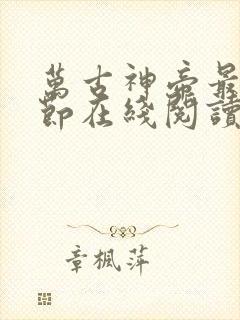 萬古神帝最
節在綫閱讀
章楓萍